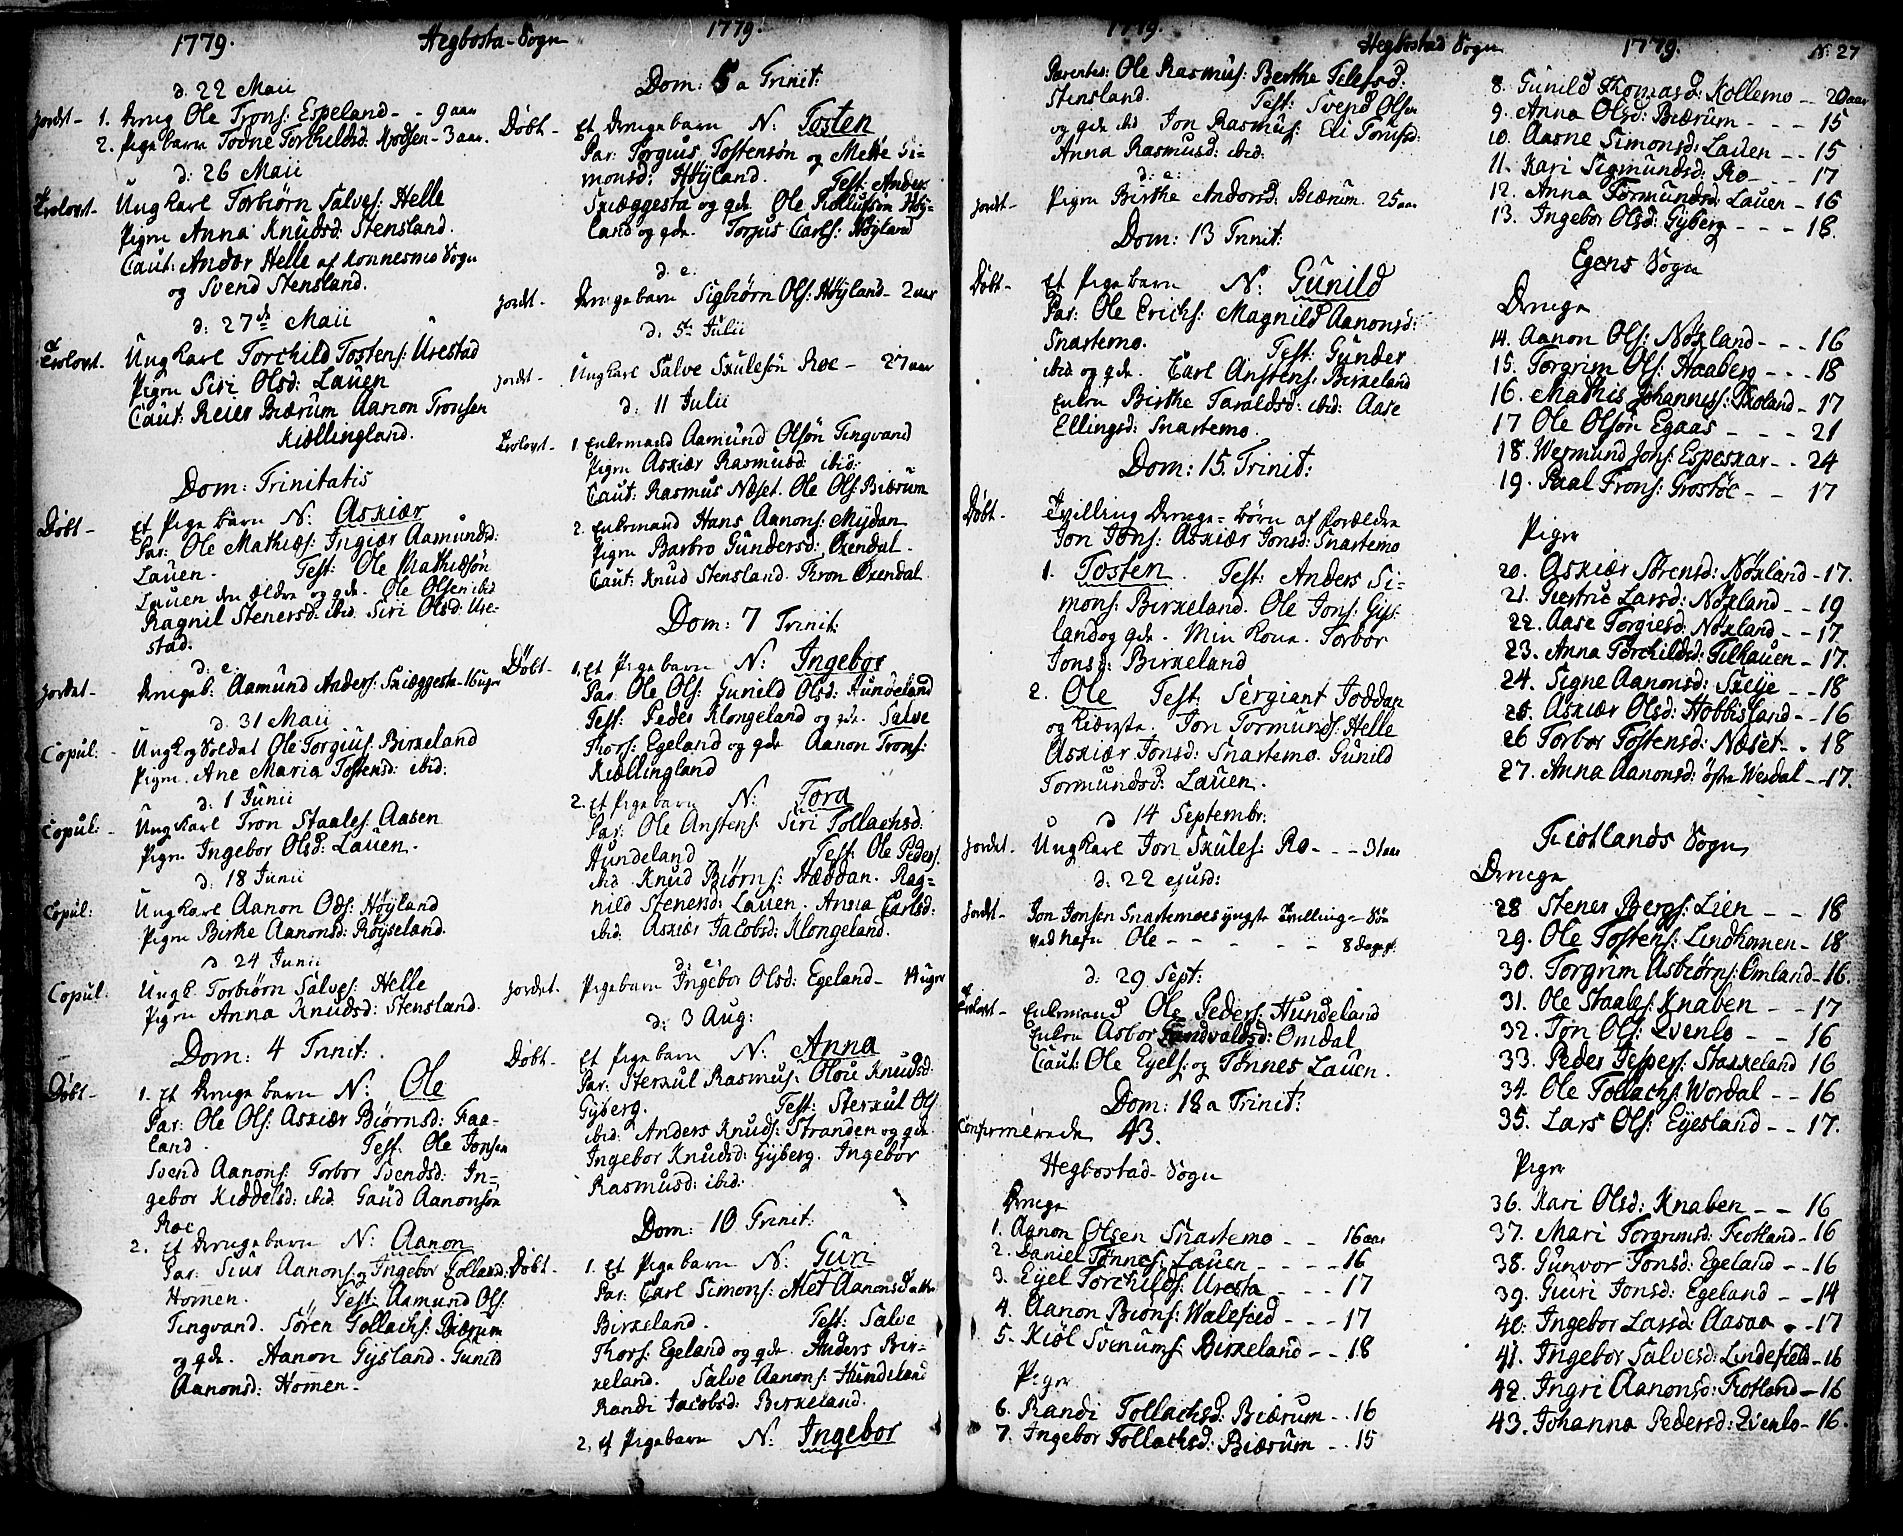 1779. Hegbosta-Sogn 1779.
d: 22 Maii
Jordet - 1. Dreng Ole Trons: Espeland - - 9 aar
2. Pige barn Todne Torkildsd: - 3 aar.
d: 26 Maii
Trolovt. Ung karl Torbiørn Salves: Helle
Pigen Anna Knudsd: Stensland.
Caut: Andor Helle af Konnesmo Sogn
og Svend Stensland.
d: 27de Maii
Trolovt. Ung karl Torchild Tostens: Urestad
Pigen Siri Olsd: Lauen
Caut: Reier Biærum Aanon Tronsen
Kiællingland.
Dom: Trinitatis
Døbt - Et Pige barn N: Askiær
Par: Ole Mathiæs: Ingiær Aamundsd:
Lauen. Test: Ole Mathiesøn
Lauen den ældre og qde. Ole Olsen ibid
Ragnil Stenersd: ibid. Siri Olsd: Ure-
stad.
d: e:
Jordet - Drengeb: Aamund Anders: Skiæggesta - 16 uger
d. 31 Maii
Copul: - Ungk og Soldat Ole Torgius: Birkeland
Pigen Ane Maria Tostensd: ibid:
d: 1 Junii
Copul: - Ung karl Tron Staales: Aasen
Pigen Ingebor Olsd: Lauen.
d: 18 Junii
Copul: Ung karl Aanon Ods: Høyland
Pigen Birthe Aanonsd: Røyseland.
d 24 Junii
Copul: Ungk. Torbiørn Salves: Helle
Pigen Anna Knudsd: Stensland.
Dom: 4 Trinit:
Døbt - 1. Et Drenge barn N: Ole
Par: Ole Ols: Askiær Biørnsd: Fraa-
land. Test: Ole Jonsen
Svend Aanons: Torbor Svendsd: In-
gebor Kiddelsd: ibid. Gaud Aanonsøn
Roe
2. Et Drengebarn N: Aanon
Par: Siur Aanons: Ingebor Tollachsd:
Homen. Test: Aamund Ols:
Tingvand. Sören Tollachs: Biærum
og qde. Aanon Gysland. Gunild
Aanonsd: Homen -
Dom: 5 a Trinit:
Døbt - Et Drengebarn N: Tosten
Par: Torguis Tostensøn og Mette Si-
monsd: Høyland. Test: Anders
Skiæggesta og qde. Ole Høy-
land og qde. Torjus Carls: Høyland
d: e.
Jordt - Drengebarn Sigbiørn Ols: Høyland - 2 aar
d: 5te Julii
Jordt - Ung karl Salve Skulesøn Roe - 27 aar
d: 11 Julii
Trolovt. 1 Enkemand Aamund Olsøn Tingvand
Pigen Askiær Rasmusd: ibid:
Caut: Rasmus Næset. Ole Ols: Biærum
2. Enkemand Hans Aanons: Mydan
Pigen Barbro Gundersd: Øxendal.
Caut: Knud Stensland. Thron Øxendal
Dom: 7 Trinit:
Døbt - 1. Et Pigebarn N: Ingebor
Par: Ole Ols: Gunild Olsd: Hundeland
Test: Peder Klongeland og qde. Salve
Thors: Egeland og qde Aanon Trons:
Kiællingland
2. Et Pigebarn N: Tora
Par: Ole Anstens: Siri Tollachsd:
Hundeland Test: Ole Peders:
ibid. Knud Biørns: Hæddan. Rag-
nild Stenersd: Lauen. Anna Carlsd:
ibid. Askiær Jacobsd: Klongeland.
d: e:
Jordet. Pigebarn Ingebor Olsd: Egeland - uger
d: 3 Aug:
Døbt - Et Pigebarn N: Anna
Par: Sterkul Rasmus: Olou Knudsd:
Gyberg. Test: Sterkul Ols:
ibid: Anders Knuds: Stranden og qde
Ingebor Knudsd: Gyberg. Ingebor
Rasmusd: ibid:
Dom: 10 Trinit:
Døbt - 1. Et Pigebarn N: Guri
Par: Carl Simons: Met Aanonsdatter
Birkeland. Test: Salve
Thors: Egeland og qde. Anders Bir-
keland. Salve Aanons: Hundeland
Randi Jacobsd: Birkeland.
2. Et Pigebarn N: Ingebor
1779. Hegbostad Sogn 1779. N. 27
Parentes: Ole Rasmus: Berthe Telefsd:
Stensland. Test: Svend Olsen
og qde ibid Jon Rasmus: Eli Tonisd:
Anna Rasmusd: ibid:
d: e:
Jordt - Pigen Birthe Andorsd: Biærum 25 aar
Dom: 13 Trinit:
Døbt - Et Pige barn N: Gunild
Par: Ole Erichs: Magnild Aanonsd:
Snartemo. Test: Gunder
ibid og qde. Carl Anstens: Birkeland
Enken Birthe Taraldsd: ibid: Aase
Ellingsd: Snartemo.
Dom: 15. Trinit:
Døbt - Tvilling Drenge-børn af Forældre
Jon Jons: Askiær Jonsd: Snartemo
1. Tosten. Test: Anders Si-
mons: Birkeland. Ole Jons: Gys-
land og qde. Min Kone. Torbor
Jonsd: Birkeland
2. Ole Test: Sergiant Joddan
og kiæreste. Jon Tormunds: Helle
Askiær Jonsd: Snartemo. Gunild
Tormundsd: Lauen.
d 14 Septembr:
Jordet - Ung karl Jon Skules: Ro - - - 31 aar
d: 22 ejusd:
Jordt - Jon Jonsen Snartemoes yngste Tvilling-Søn
ved Nafn Ole - - - - 8 dage gl.
d: 29 Sept:
Trolovt - Enkemand Ole Peders: Hundeland
Enken Asbor d: Omdal
Caut: Ole Eyels: og Tønnes Lauen.
Dom: 18 a Trinit:
Confirmerede 43.
Hegbostad-Sogn
Drenge
1. Aanon Olsen Snartemo - - 16 aar
2. Daniel Tønnes: Lauen - - - - 16
3. Eyel Torchilds: Uresta - - - 17
4. Aanon Bions: Walefied - - - 17
5. Kiøl Svenums: Birkeland - - 18
Piger
6. Randi Tollachsd: Biærum - . 16
7. Ingebor Tollachsd: Biærum - . 15
8. Gunild Thomasd: Kollemo - 20 aar
9. Anna Olsd: Biærum - - - 15
10. Aasne Simonsd: Lauen - - 15
11. Kari Sigmundsd: Ro - - - 17
12. Anna Tormundsd: Lauen - 16
13. Ingebor Olsd: Gyberg - - - 18.
Egens Sogn
Drenge
14. Aanon Ols: Nøkland - - - 16
15. Torgrim Ols: Haaberg - - - 18
16. Mathis Johannes: Skoland - 17
17 Ole Olsøn Egaas - - - 21
18. Wermund Jons: Espeskar - - 24
19. Paal Trons: Grostøl - - 17
Piger
20. Askiær Sørensd: Nøkland - 17.
21. Giertrue Larsd: Nøkland - - 19
22. Aase Torgiesd: Nøkland - - 17
23. Anna Torchildsd: Tilhauen - 17.
24. Signe Aanonsd: Skeye - - 18
25. Askiær Olsd: Hobbisland - - 16
26 Torbor Tostensd: Næset - . 18
27. Anna Aanonsd: østre Werdal - - 17.
Fiotlands Sogn
Drenge
28 Stener Bergs: Lien - - 18
29. Ole Tostens: Lindhomen - 18.
30. Torgrim Asbiørns: Omland - 16.
31. Ole Staales: Knaben - - 17
32. Jon Ols: Qvenlo - - 16
33. Peder Jespers: Stakkeland 16
34. Ole Tollachs: Wordal - - 16
35. Lars Ols: Eyesland - - 17.
Piger
36. Kari Olsd: Knaben - - 16
37. Mari Torgrimsd: Fiotland - 16
38. Gunvor Jonsd: Egeland - - 16
39. Guri Jonsd: Egeland - - 14
40. Ingebor Larsd: Aasaa - - 17
41. Ingebor Salvesd: Lindefield - 16
42. Ingri Aanonsd: Fiotland - 16
43. Johanna Pedersd: Qvenlo - 16.